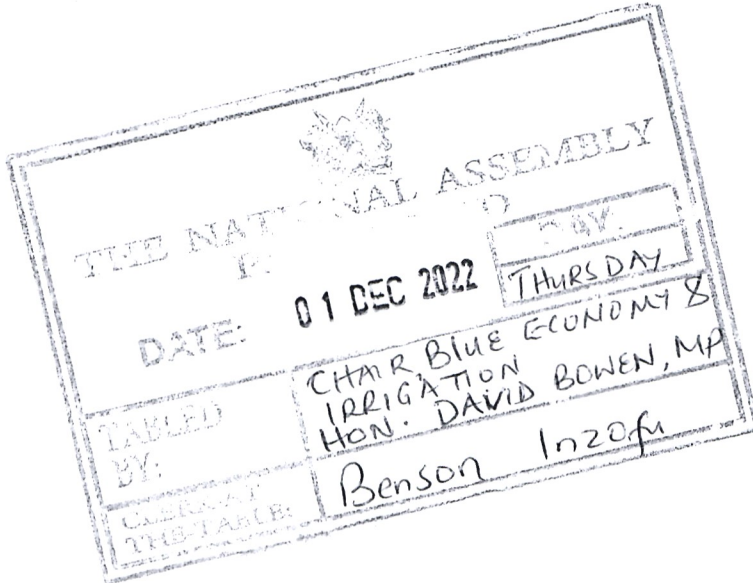 THE NATIONAL ASSEMBLY
DATE: 01 DEC 2022
DAY.
THURSDAY
TABLED BY:
CHAIR, BLUE ECONOMY &
IRRIGATION
HON. DAVID BOWEN, MP
CLERK AT THE-TABLE:
Benson Inzofu